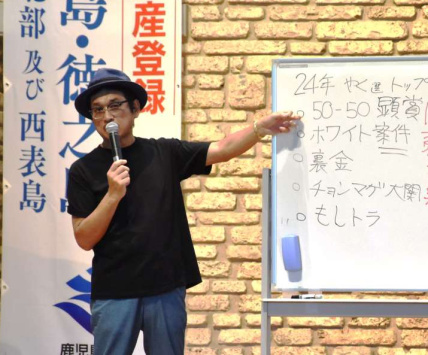 産登録
島・徳之島
北部 及び 西表島
鹿児島
24年 やく選 トップ
50-50 顕賞
ホワイト案件
裏金
チョンマゲ大関
もしトラ